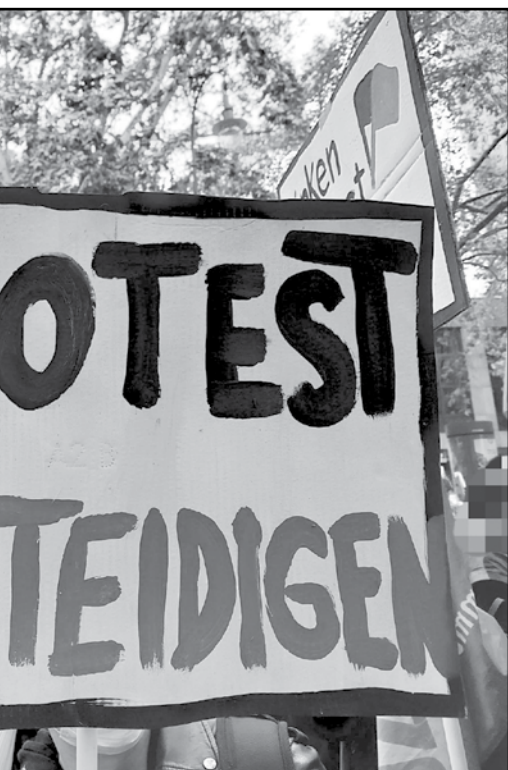 OTEST
TEIDIGEN